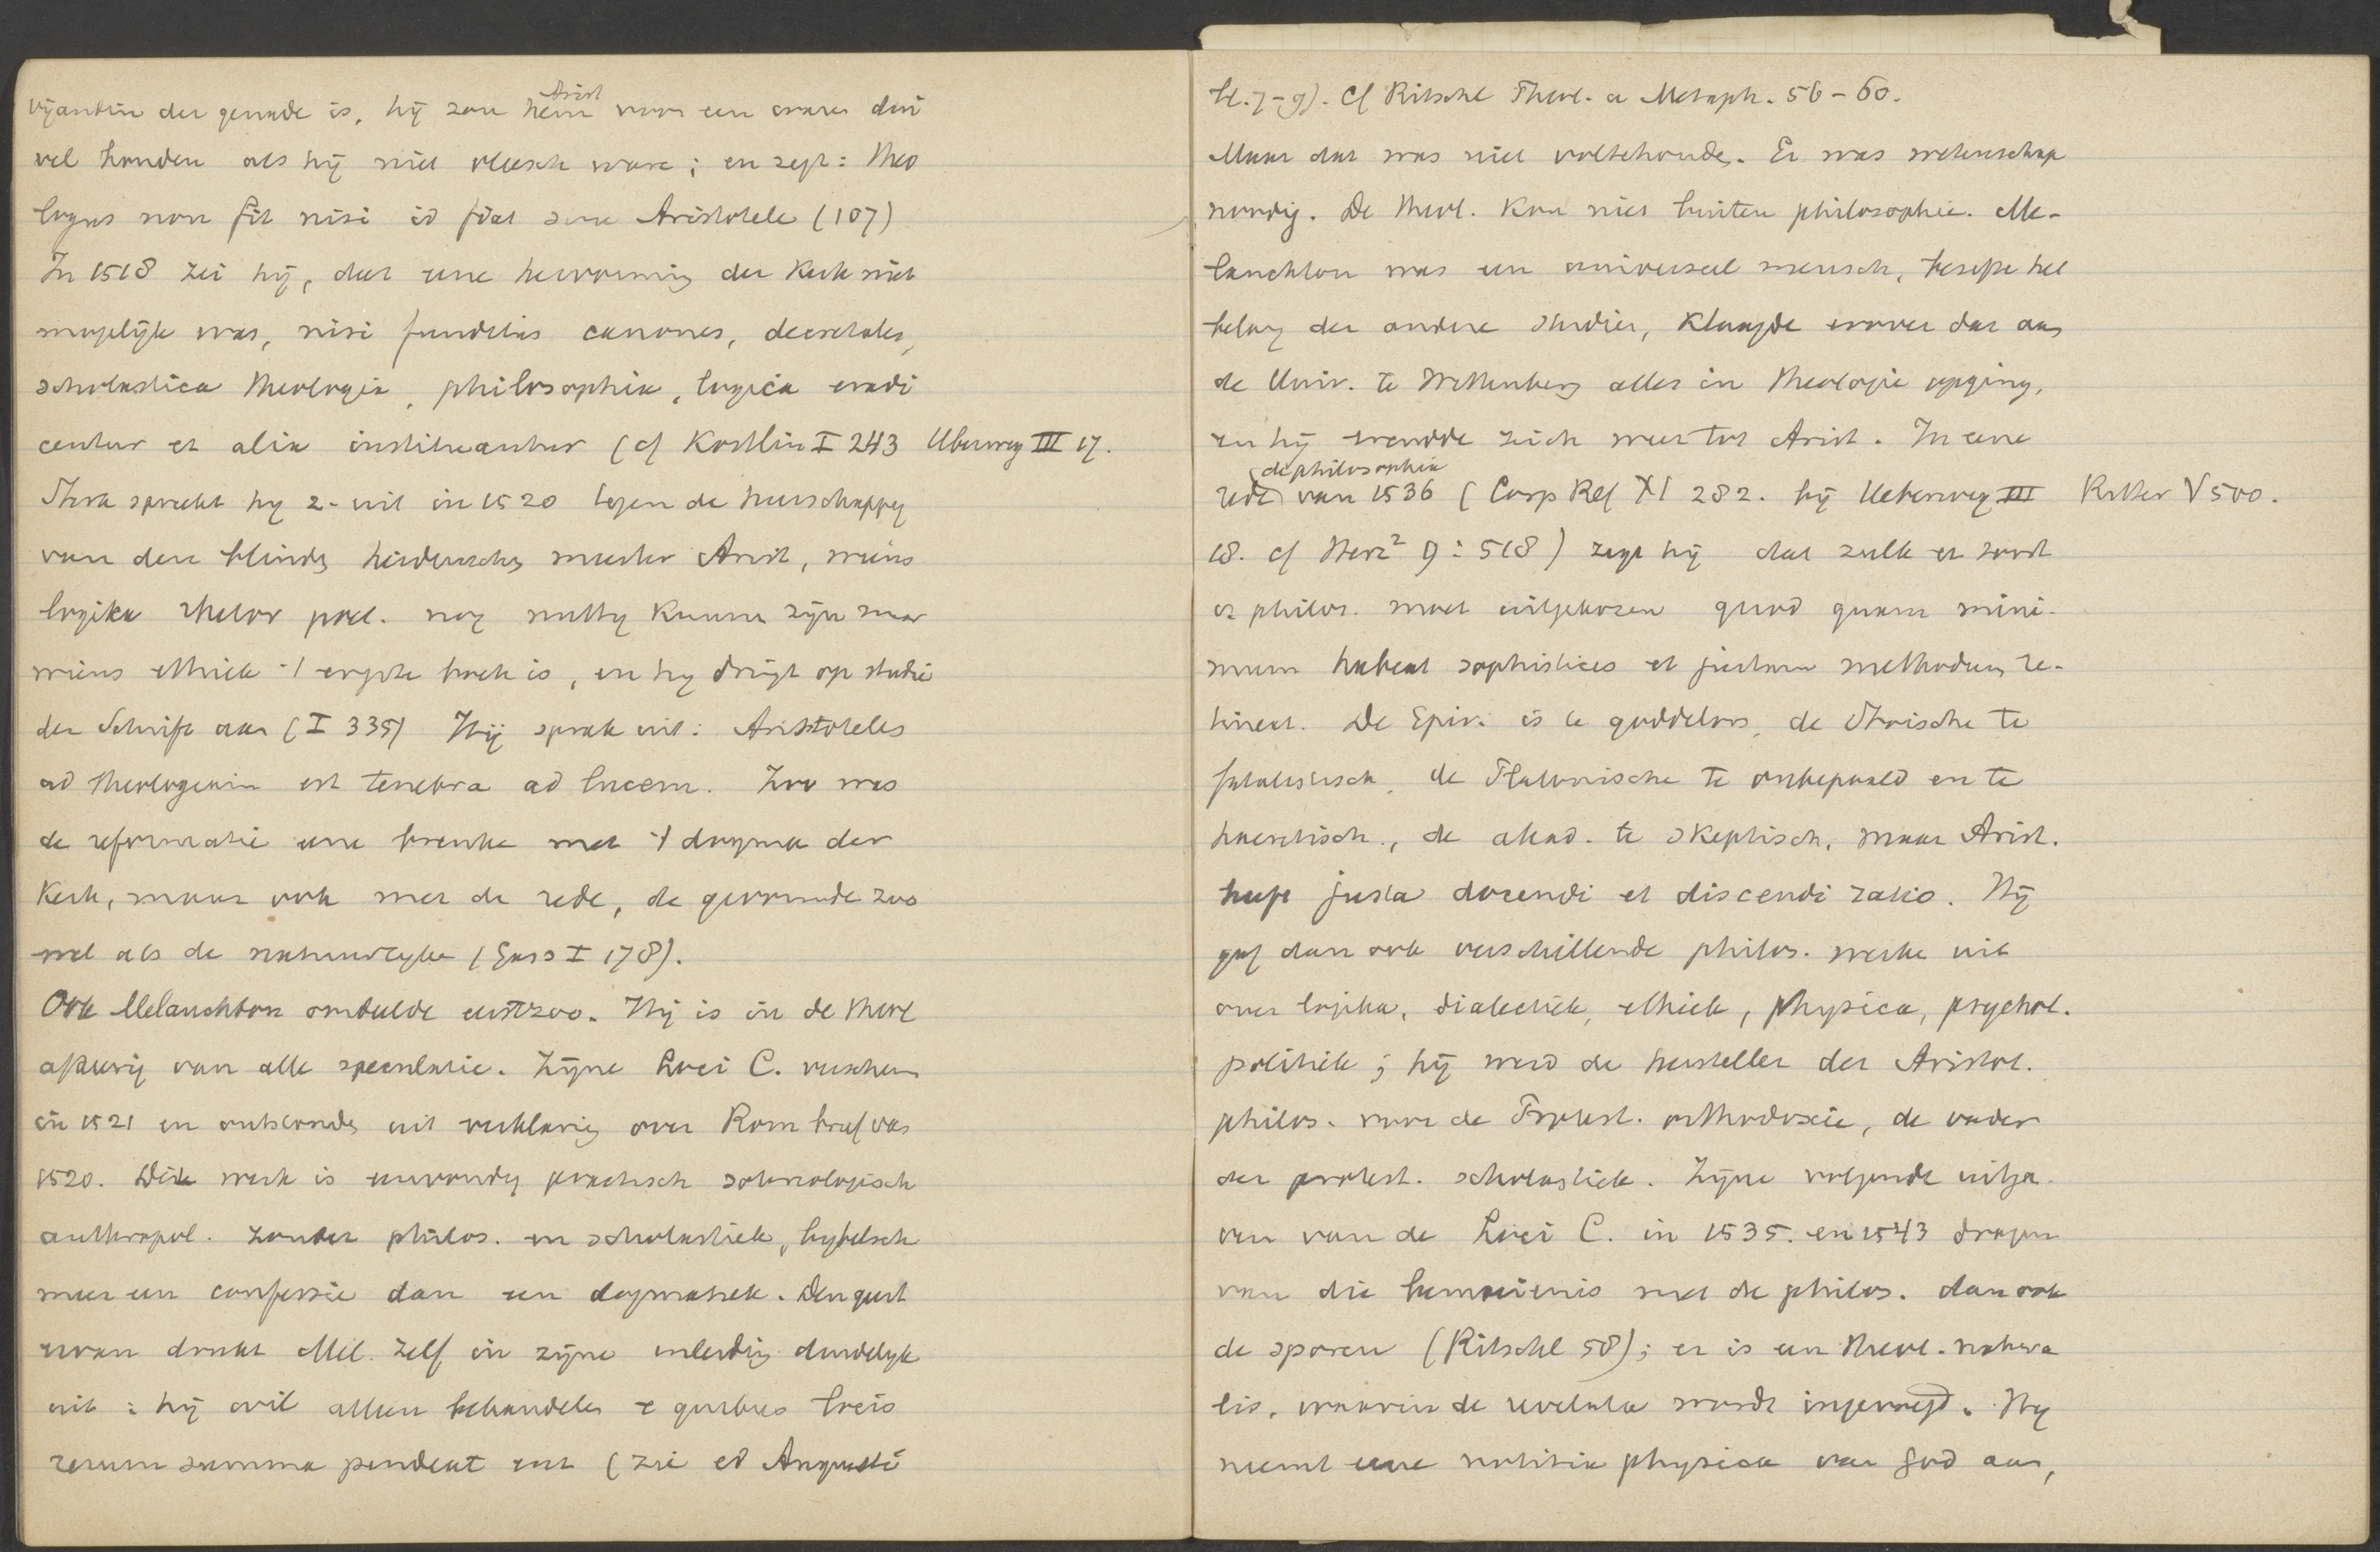 vijandin der genade is, hij zou hem voor een waren dui
Arist
vel houden als hij niet vleesch ware; en zegt: theo
logus non fit nisi id fiat sine Aristotele (107)
In 1518 zei hij, dat eene hervorming der Kerk niet
mogelijk was, nisi funditus canones, decretales,
scholastica theologia, philosophia, logica eradi
centur et alia instituantur (cf Kostlin I 243 Uberweg III 17.
Sterk spreekt hy z- uit in 1520 tegen de heerschappy
van den blinden heidenschen meester Arist, wiens
logika rhetor poet. nog nuttig kunnen zijn maar
wiens ethiek 't ergste boek is, en hy dringt op studie
der Schrift aan (I 335) Hij sprak uit: Aristoteles
ad theologiam est tenebra ad lucem. Zoo was
de reformatie eene breuke met 't dogma der
Kerk, maar ook met de rede, de gevormde zoo
wel als de natuurlyke (Gass I 178).
Ook Melanchton oordeelde eerst zoo. Hij is in de theol
afkeerig van alle speculatie. Zijne Loci C. verschenen
in 1521 en ontstonden uit verklaring over Rom brief van
1520. Dit werk is eenvoudig practisch soteriologisch
anthropol. zonder philos. en scholastiek, bybelsch
meer een confessie dan een dogmatiek. Den geest
ervan drukt Mel. zelf in zijne inleiding duidelyk
uit: hij wil alleen behandelen e quibus locis
rerum summa pendeat enz (zie ed Augusti
bl. 7-9). Cf Ritschl Theol. u Metaph. 56-60.
Maar dat was niet voltehouden. Er was wetenschap
noodig. De theol. kon niet buiten philosophie. Me-
lanchton was een universeel mensch, besefte het
belang der andere studien, klaagde erover dat aan
de Univ. te Wittenberg alles in theologie opging,
en hij wendde zich weer tot Arist. In eene
de philosophia
rede van 1536 (Corp Ref XI 282. bij Ueberweg III Ritter V 500.
18. cf Herz² 9: 518) zegt hij dat zulk een soort
v. philos. moet uitgekozen quod quam mini-
mum habeat sophistices et justam methodum re-
tineat. De Epic. is te goddeloos, de Stoische te
fatalistisch, de Platonische te onbepaald en te
haeretisch, de akad. te skeptisch, maar Arist.
heeft justa docendi et discendi ratio. Hij
gaf dan ook verschillende philos. werken uit
over logika, dialectiek, ethiek, physica, psychol.
politiek; hij werd de hersteller der Aristot.
philos. voor de Protest. orthodoxie, de vader
der protest. scholastiek. Zijne volgende uitga-
ven van de Loci C. in 1535. en 1543 dragen
van die bemoeienis met de philos. dan ook
de sporen (Ritschl 58); er is een theol. natura
lis, waarin de revelata wordt ingevoegd. Hy
neemt eene notitia physica van God aan,